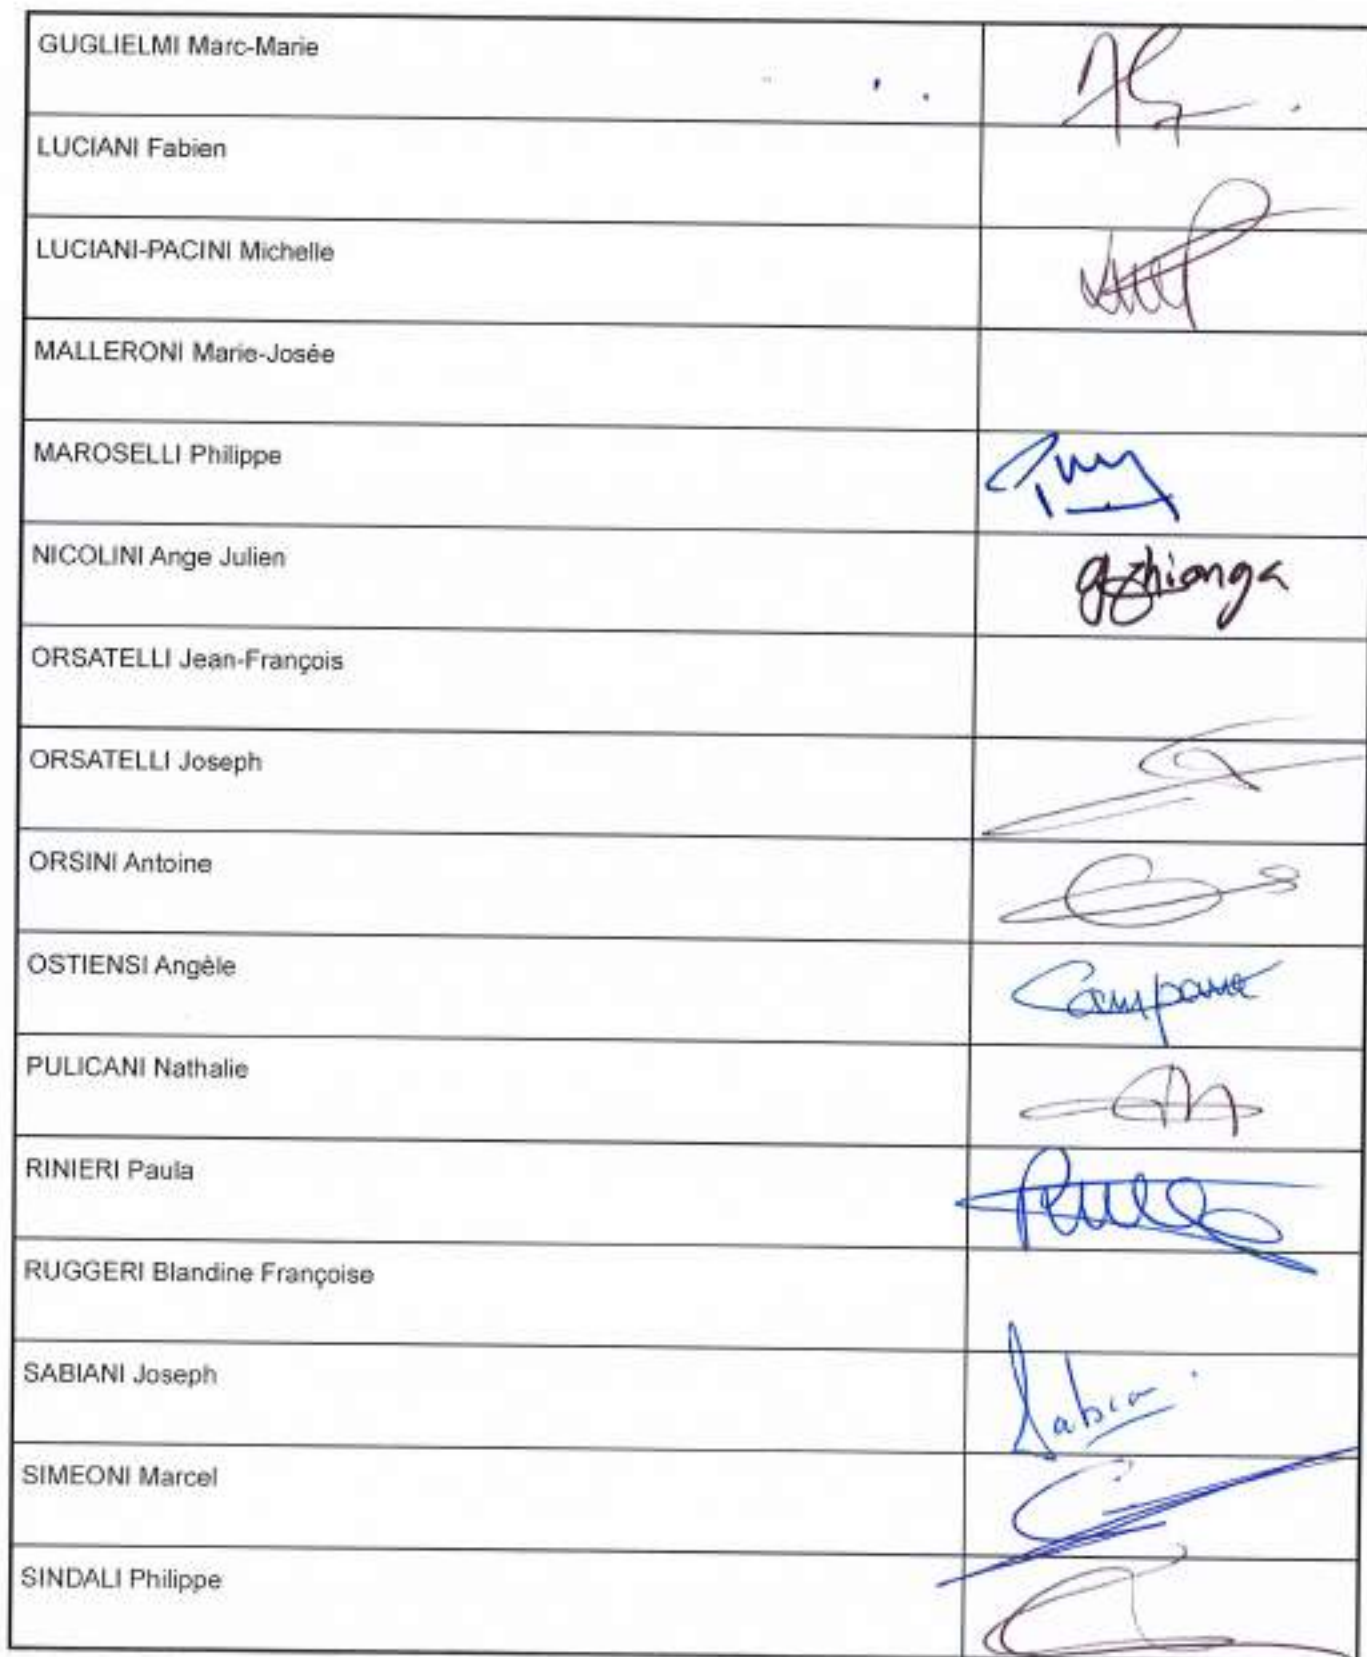 GUGLIELMI Marc-Marie
LUCIANI Fabien
LUCIANI-PACINI Michelle
MALLERONI Marie-Josée
MAROSELLI Philippe
NICOLINI Ange Julien
ORSATELLI Jean-François
ORSATELLI Joseph
ORSINI Antoine
OSTIENSI Angèle
Campana
PULICANI Nathalie
RINIERI Paula
RUGGERI Blandine Françoise
SABIANI Joseph
SIMEONI Marcel
SINDALI Philippe